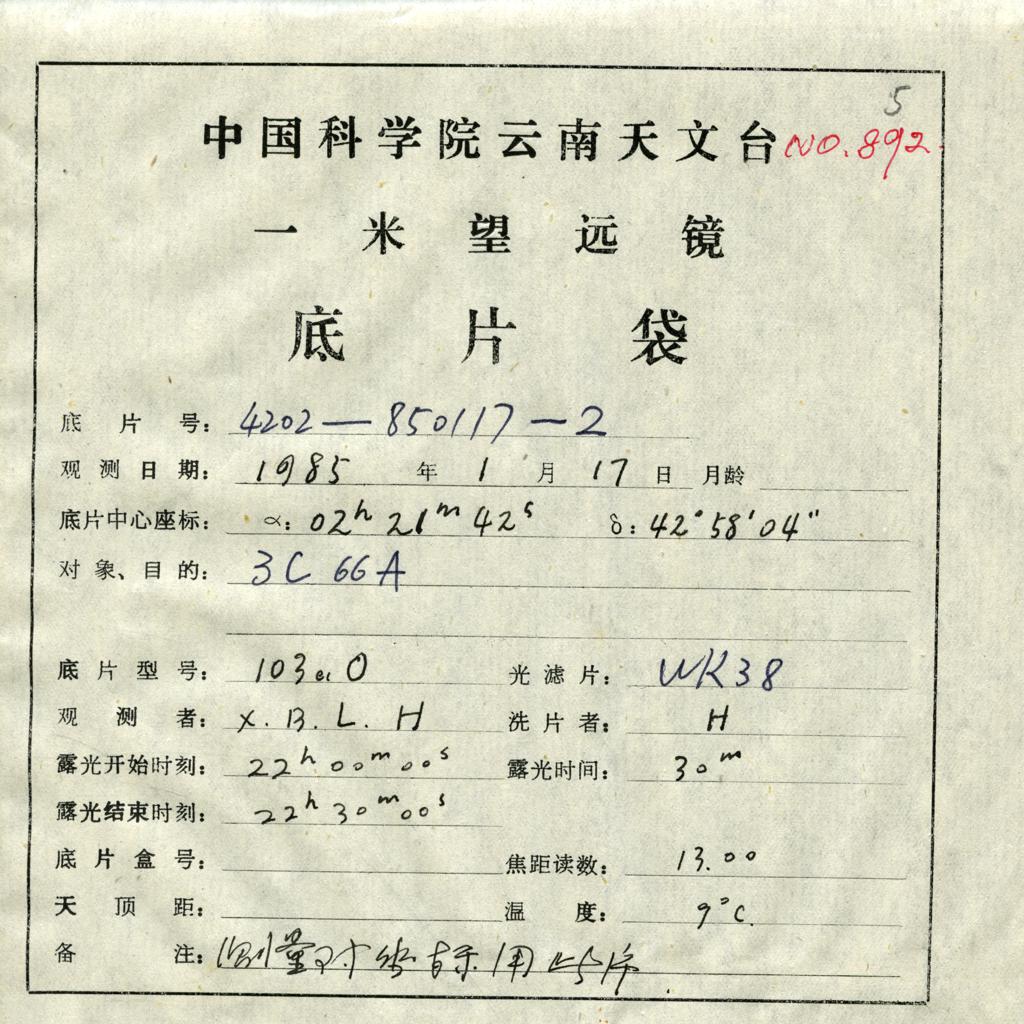 5
中国科学院云南天文台 NO.892
一米望远镜
底片袋
底片号: 4202—850117—2
观测日期: 1985 年 1 月 17 日 月龄
底片中心座标: α: 02h 21m 42s δ: 42°58'04"
对象、目的: 3C 66A
底片型号: 103aO 光滤片: WK38
观测者: X.B.L.H 洗片者: H
露光开始时刻: 22h 00m 00s 露光时间: 30m
露光结束时刻: 22h 30m 00s
底片盒号: 焦距读数: 13.00
天顶距: 温度: 9°C
备注: 测量对 用